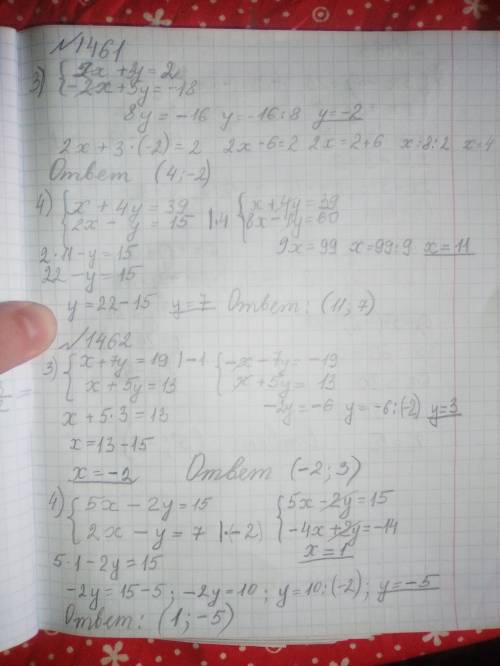 №1461
3) { 2x + 3y = 2
{ -2x + 5y = -18
8y = -16 y = -16:8 y = -2
2x + 3·(-2) = 2 2x - 6 = 2 2x = 2+6 x=8:2 x=4
Ответ (4;-2)
4) { x + 4y = 39 { x + 4y = 39
{ 2x - y = 15 |·4 { 8x - 4y = 60
9x = 99 x = 99:9 x = 11
2·11 - y = 15
22 - y = 15
y = 22 - 15 y = 7 Ответ: (11; 7)
№1462
3) { x + 7y = 19 |-1 { -x - 7y = -19
{ x + 5y = 13 { x + 5y = 13
-2y = -6 y = -6:(-2) y = 3
x + 5·3 = 13
x = 13 - 15
x = -2 Ответ (-2; 3)
4) { 5x - 2y = 15 { 5x - 2y = 15
{ 2x - y = 7 |·(-2) { -4x + 2y = -14
x = 1
5·1 - 2y = 15
-2y = 15 - 5; -2y = 10; y = 10:(-2); y = -5
Ответ: (1; -5)